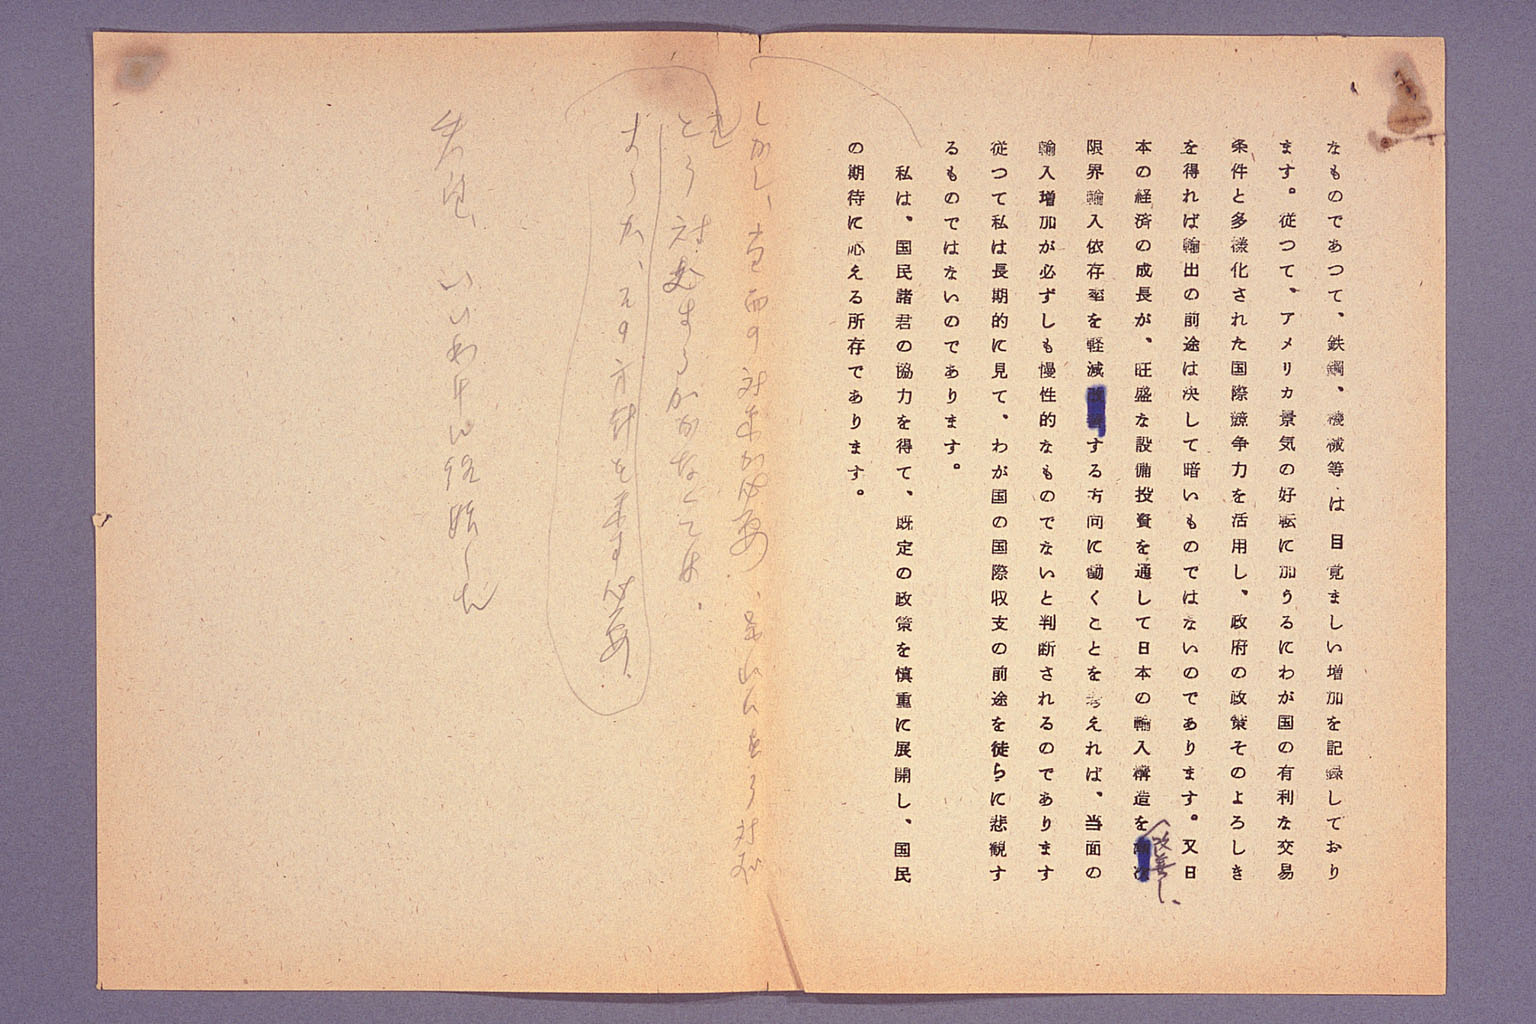 なものであつて、鉄鋼、機械等は目覚ましい増加を記録しており
ます。従つて、アメリカ景気の好転に加うるにわが国の有利な交易
条件と多様化された国際競争力を活用し、政府の政策そのよろしき
を得れば輸出の前途は決して暗いものではないのであります。又日
本の経済の成長が、旺盛な設備投資を通して日本の輸入構造を
改善し、
限界輸入依存率を軽減する方向に働くことを考えれば、当面の
輸入増加が必ずしも慢性的なものでないと判断されるのであります
従つて私は長期的に見て、わが国の国際収支の前途を徒らに悲観す
るものではないのであります。
私は、国民諸君の協力を得て、既定の政策を慎重に展開し、国民
の期待に応える所存であります。
しかし、当面の対策が必要、
とう対処するかがなくては、
ようか、その方針を示す必要